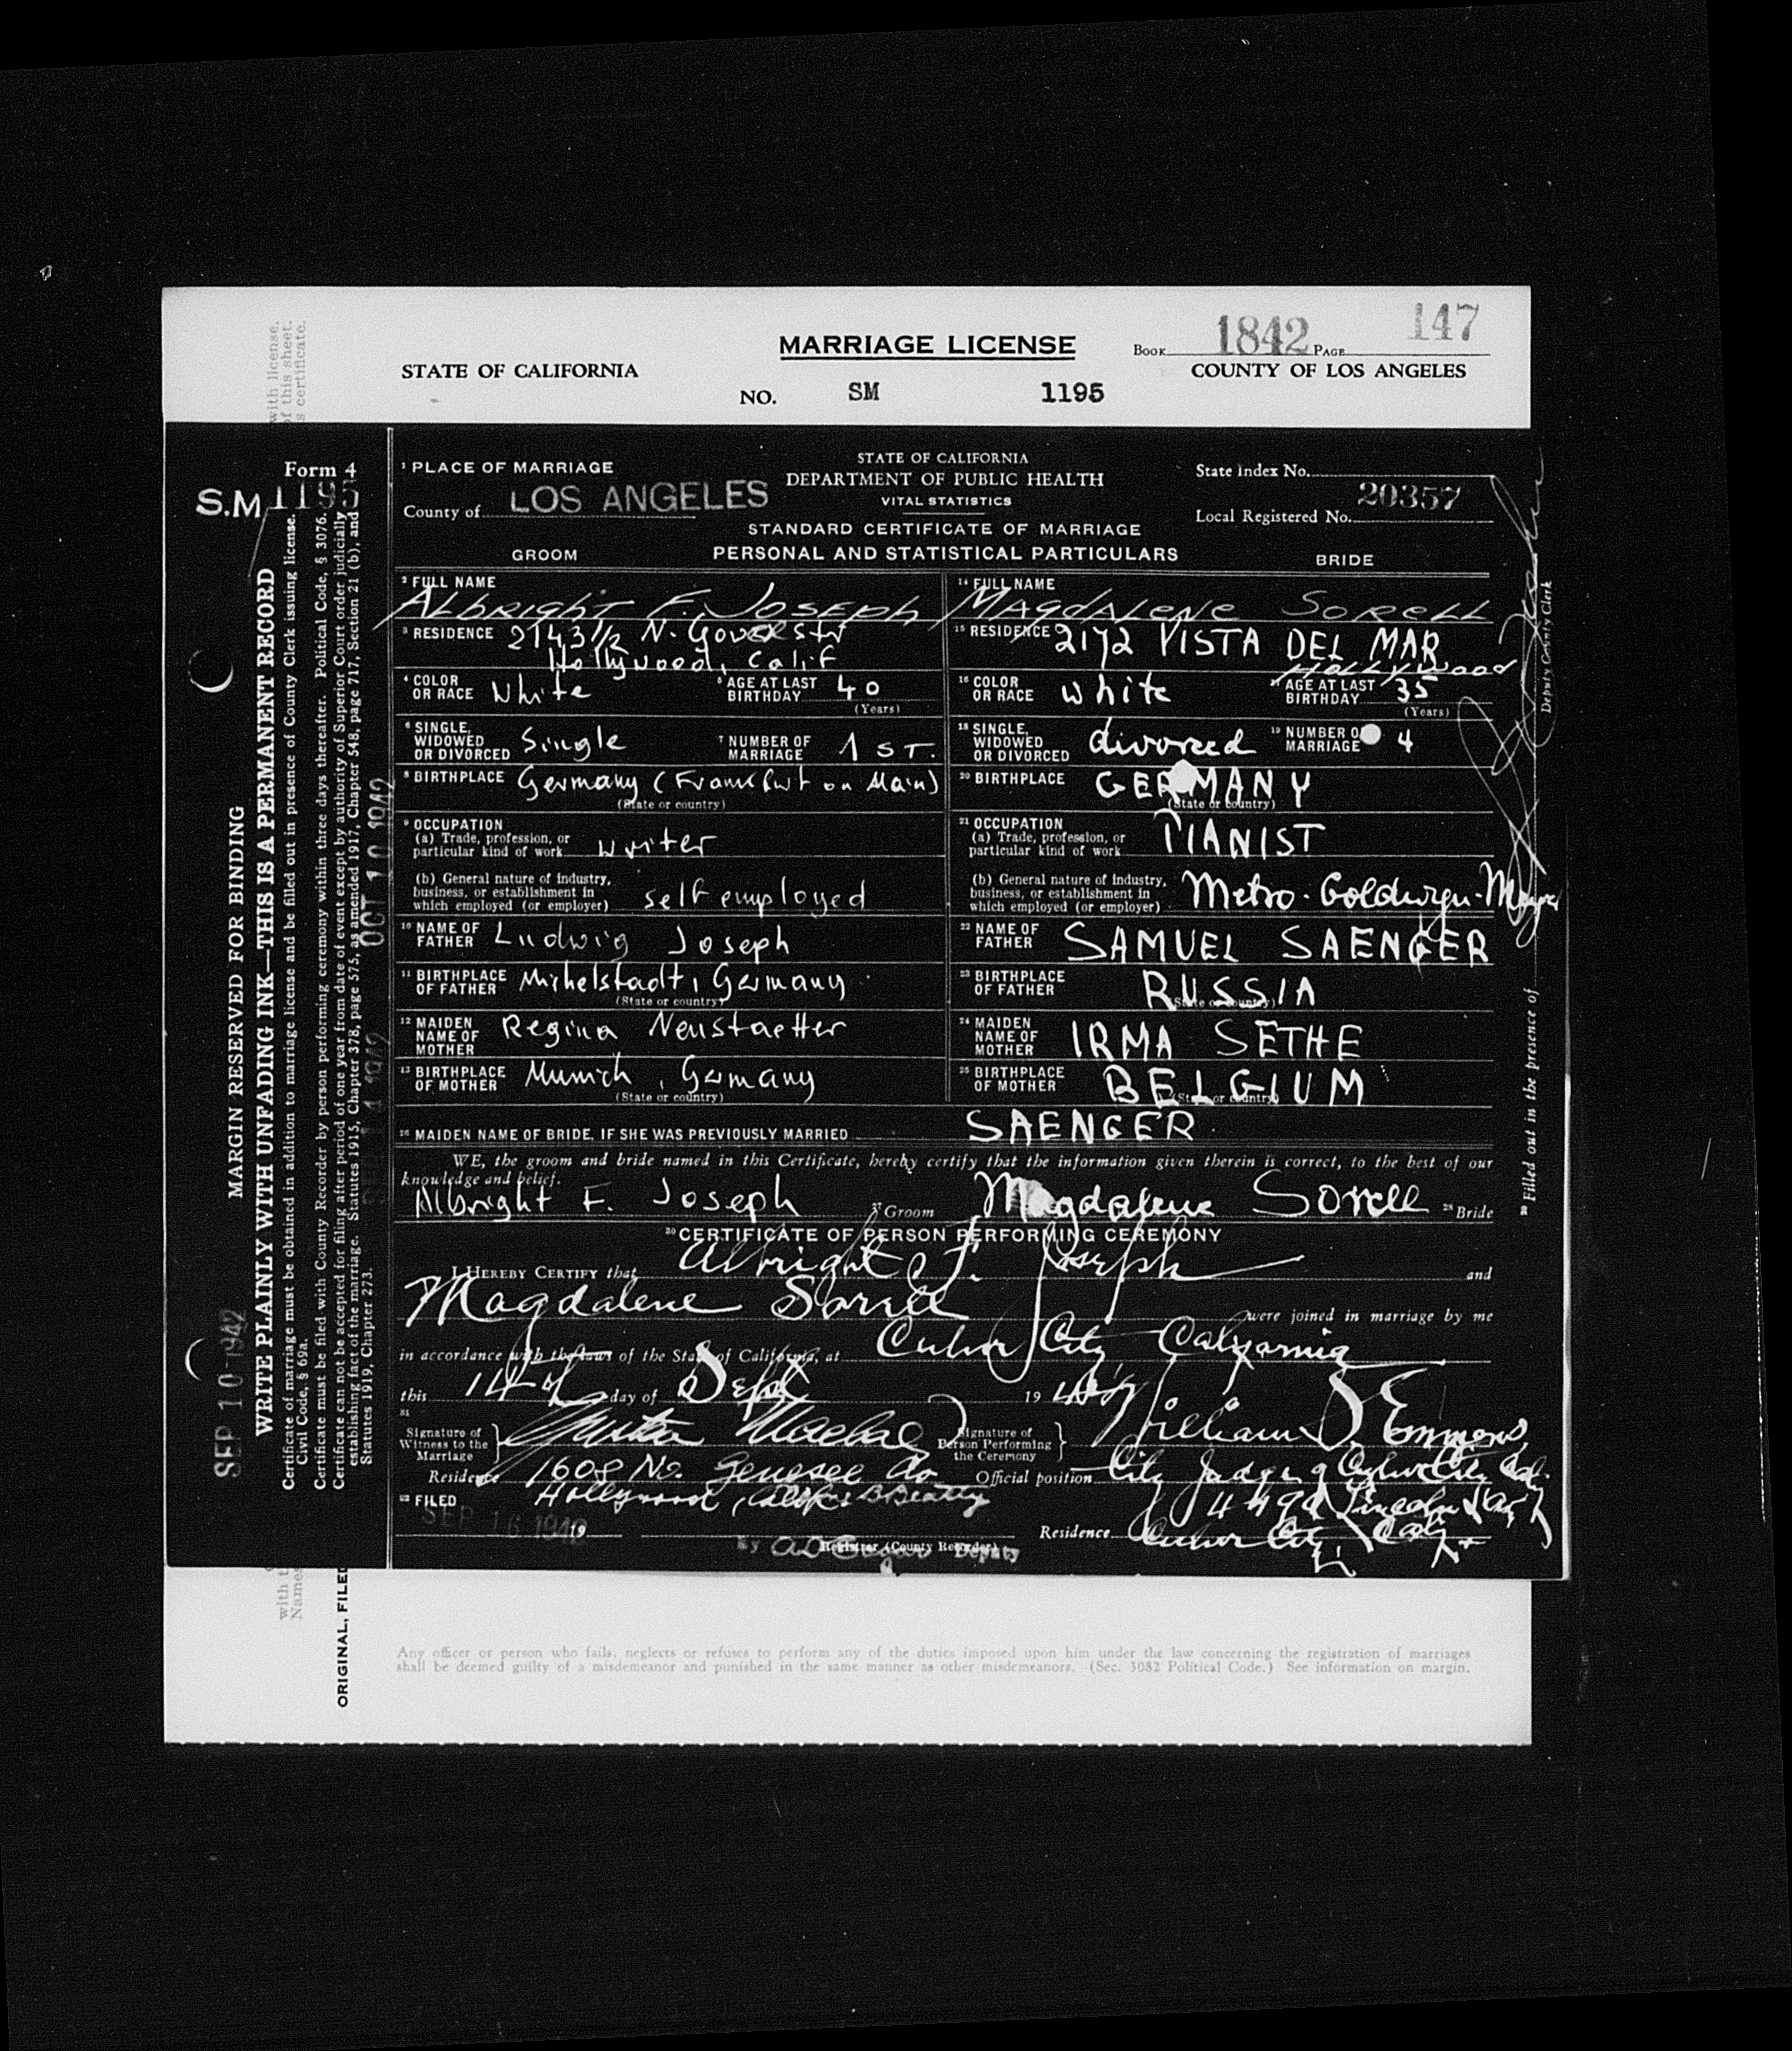 MARRIAGE LICENSE
Book 1842 Page 147
STATE OF CALIFORNIA
COUNTY OF LOS ANGELES
NO. SM 1195
with license.
of this sheet.
s certificate.
Form 4
S.M 1195
MARGIN RESERVED FOR BINDING
WRITE PLAINLY WITH UNFADING INK—THIS IS A PERMANENT RECORD
Certificate of marriage must be obtained in addition to marriage license and be filed out in presence of County Clerk issuing license.
Civil Code, § 69a.
Certificate must be filed with County Recorder by person performing ceremony within three days thereafter. Political Code, § 3076.
Certificate can not be accepted for filing after period of one year from date of event except by authority of Superior Court order judicially
establishing fact of the marriage. Statutes 1915, Chapter 378, page 575, as amended 1917, Chapter 548, page 717, Section 21 (b), and
Statutes 1919, Chapter 273.
SEP 10 1942
OCT 10 1942
1 PLACE OF MARRIAGE
County of LOS ANGELES
STATE OF CALIFORNIA
DEPARTMENT OF PUBLIC HEALTH
VITAL STATISTICS
STANDARD CERTIFICATE OF MARRIAGE
State Index No.
Local Registered No. 20357
GROOM PERSONAL AND STATISTICAL PARTICULARS BRIDE
2 FULL NAME Albright F. Joseph
3 RESIDENCE 2143 1/2 N. Gower Str
Hollywood, Calif
4 COLOR OR RACE White
5 AGE AT LAST BIRTHDAY 40 (Years)
6 SINGLE, WIDOWED OR DIVORCED Single
7 NUMBER OF MARRIAGE 1st.
8 BIRTHPLACE Germany (Frankfurt on Main)
(State or country)
9 OCCUPATION
(a) Trade, profession, or
particular kind of work writer
(b) General nature of industry,
business, or establishment in
which employed (or employer) self employed
10 NAME OF FATHER Ludwig Joseph
11 BIRTHPLACE OF FATHER Michelstadt, Germany
(State or country)
12 MAIDEN NAME OF MOTHER Regina Neustaetter
13 BIRTHPLACE OF MOTHER Munich, Germany
(State or country)
14 FULL NAME Magdalene Sorell
15 RESIDENCE 2172 VISTA DEL MAR
Hollywood
16 COLOR OR RACE white
17 AGE AT LAST BIRTHDAY 35 (Years)
18 SINGLE, WIDOWED OR DIVORCED divorced
19 NUMBER OF MARRIAGE 4
20 BIRTHPLACE GERMANY
(State or country)
21 OCCUPATION
(a) Trade, profession, or
particular kind of work PIANIST
(b) General nature of industry,
business, or establishment in
which employed (or employer) Metro-Goldwyn-Mayer
22 NAME OF FATHER SAMUEL SAENGER
23 BIRTHPLACE OF FATHER RUSSIA
(State or country)
24 MAIDEN NAME OF MOTHER IRMA SETHE
25 BIRTHPLACE OF MOTHER BELGIUM
(State or country)
26 MAIDEN NAME OF BRIDE, IF SHE WAS PREVIOUSLY MARRIED SAENGER
WE, the groom and bride named in this Certificate, hereby certify that the information given therein is correct, to the best of our
knowledge and belief.
Albright F. Joseph 27 Groom Magdalene Sorell 28 Bride
29 Filled out in the presence of
Deputy County Clerk
30 CERTIFICATE OF PERSON PERFORMING CEREMONY
I HEREBY CERTIFY that Albright F. Joseph and
Magdalene Sorrell were joined in marriage by me
in accordance with the laws of the State of California, at Culver City California
this 14th day of Sept 19 42
31 Signature of Witness to the Marriage
Signature of Person Performing the Ceremony William S. Emmons
Residence 1608 No. Genesee Av
Hollywood, Calif
Official position City Judge of Culver City Cal.
32 FILED
SEP 16 1942
19
B Beatty
Registrar (County Recorder)
By Deputy
Residence Lincoln
Culver City, Calif
with t
Names
ORIGINAL, FILED
Any officer or person who fails, neglects or refuses to perform any of the duties imposed upon him under the law concerning the registration of marriages
shall be deemed guilty of a misdemeanor and punished in the same manner as other misdemeanors. (Sec. 3082 Political Code.) See information on margin.